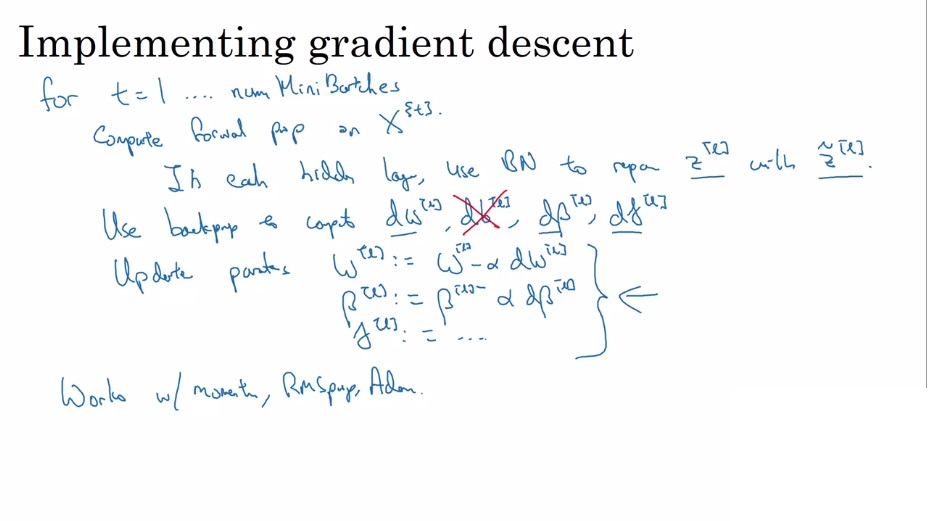 Implementing gradient descent
for t = 1 .... num Mini Batches
Compute forwal prop on X^{t}.
In each hidden layer, use BN to repan z^[l] with z̃^[l].
Use backprop to compt dw^[l], db^[l], dβ^[l], dγ^[l]
Update parates w^[l] := w^[l] - α dw^[l]
β^[l] := β^[l] - α dβ^[l]
γ^[l] := ...
Works w/ momentm, RMSprop, Adam.